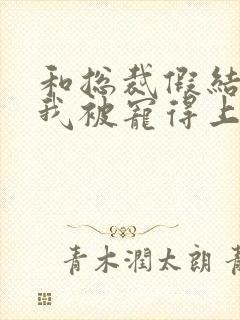 和総裁假結
我被寵得上
青木潤太朗 青